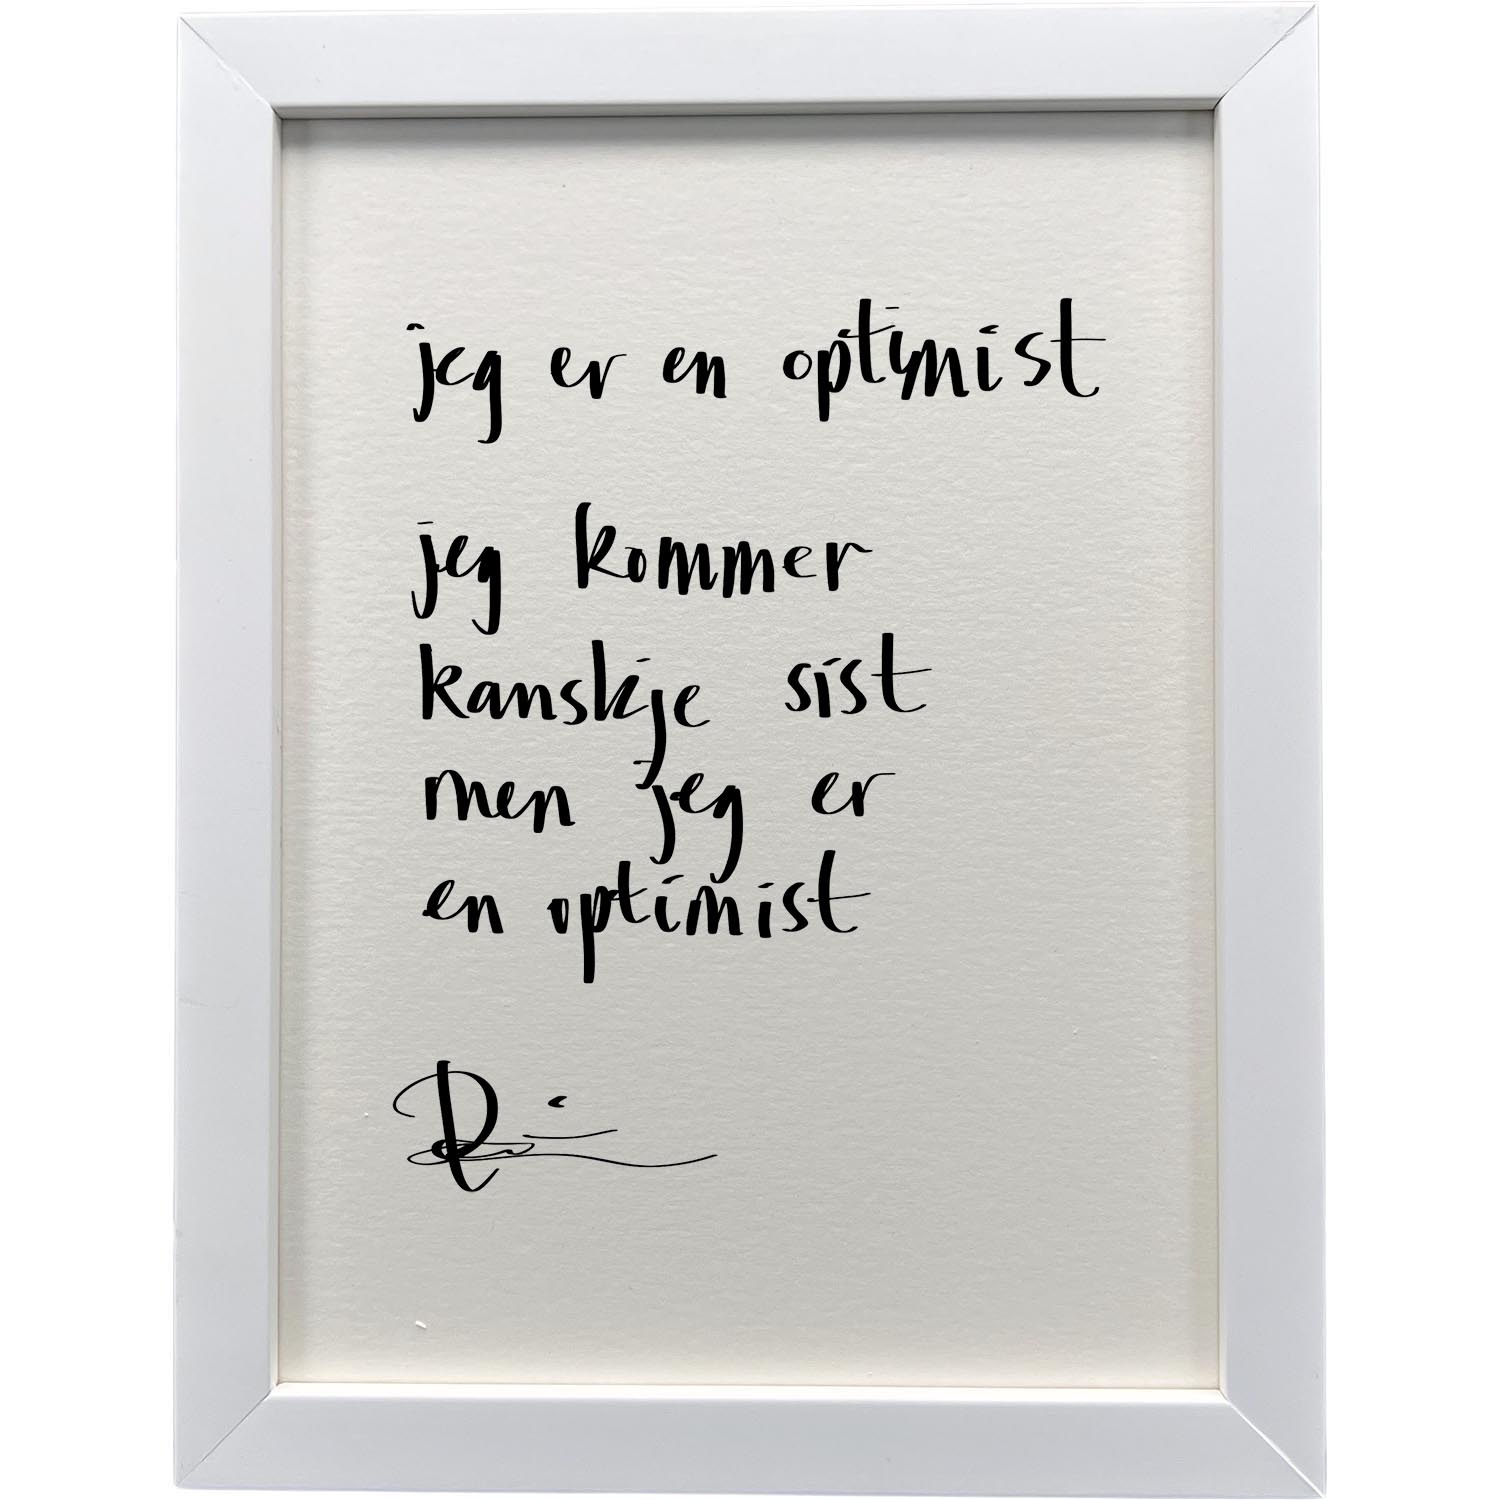 jeg er en optimist
jeg kommer
kanskje sist
men jeg er
en optimist